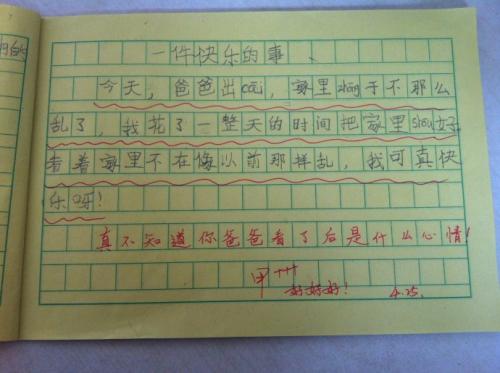 一件快乐的事、
今天，爸爸出cāi，家里zhōng于不那么
乱了，我花了一整天的时间把家里shōu好
看着家里不在像以前那样乱，我可真快
乐呀！
真不知道你爸爸看了后是什么心情！
甲++++
好好好！
4.25.